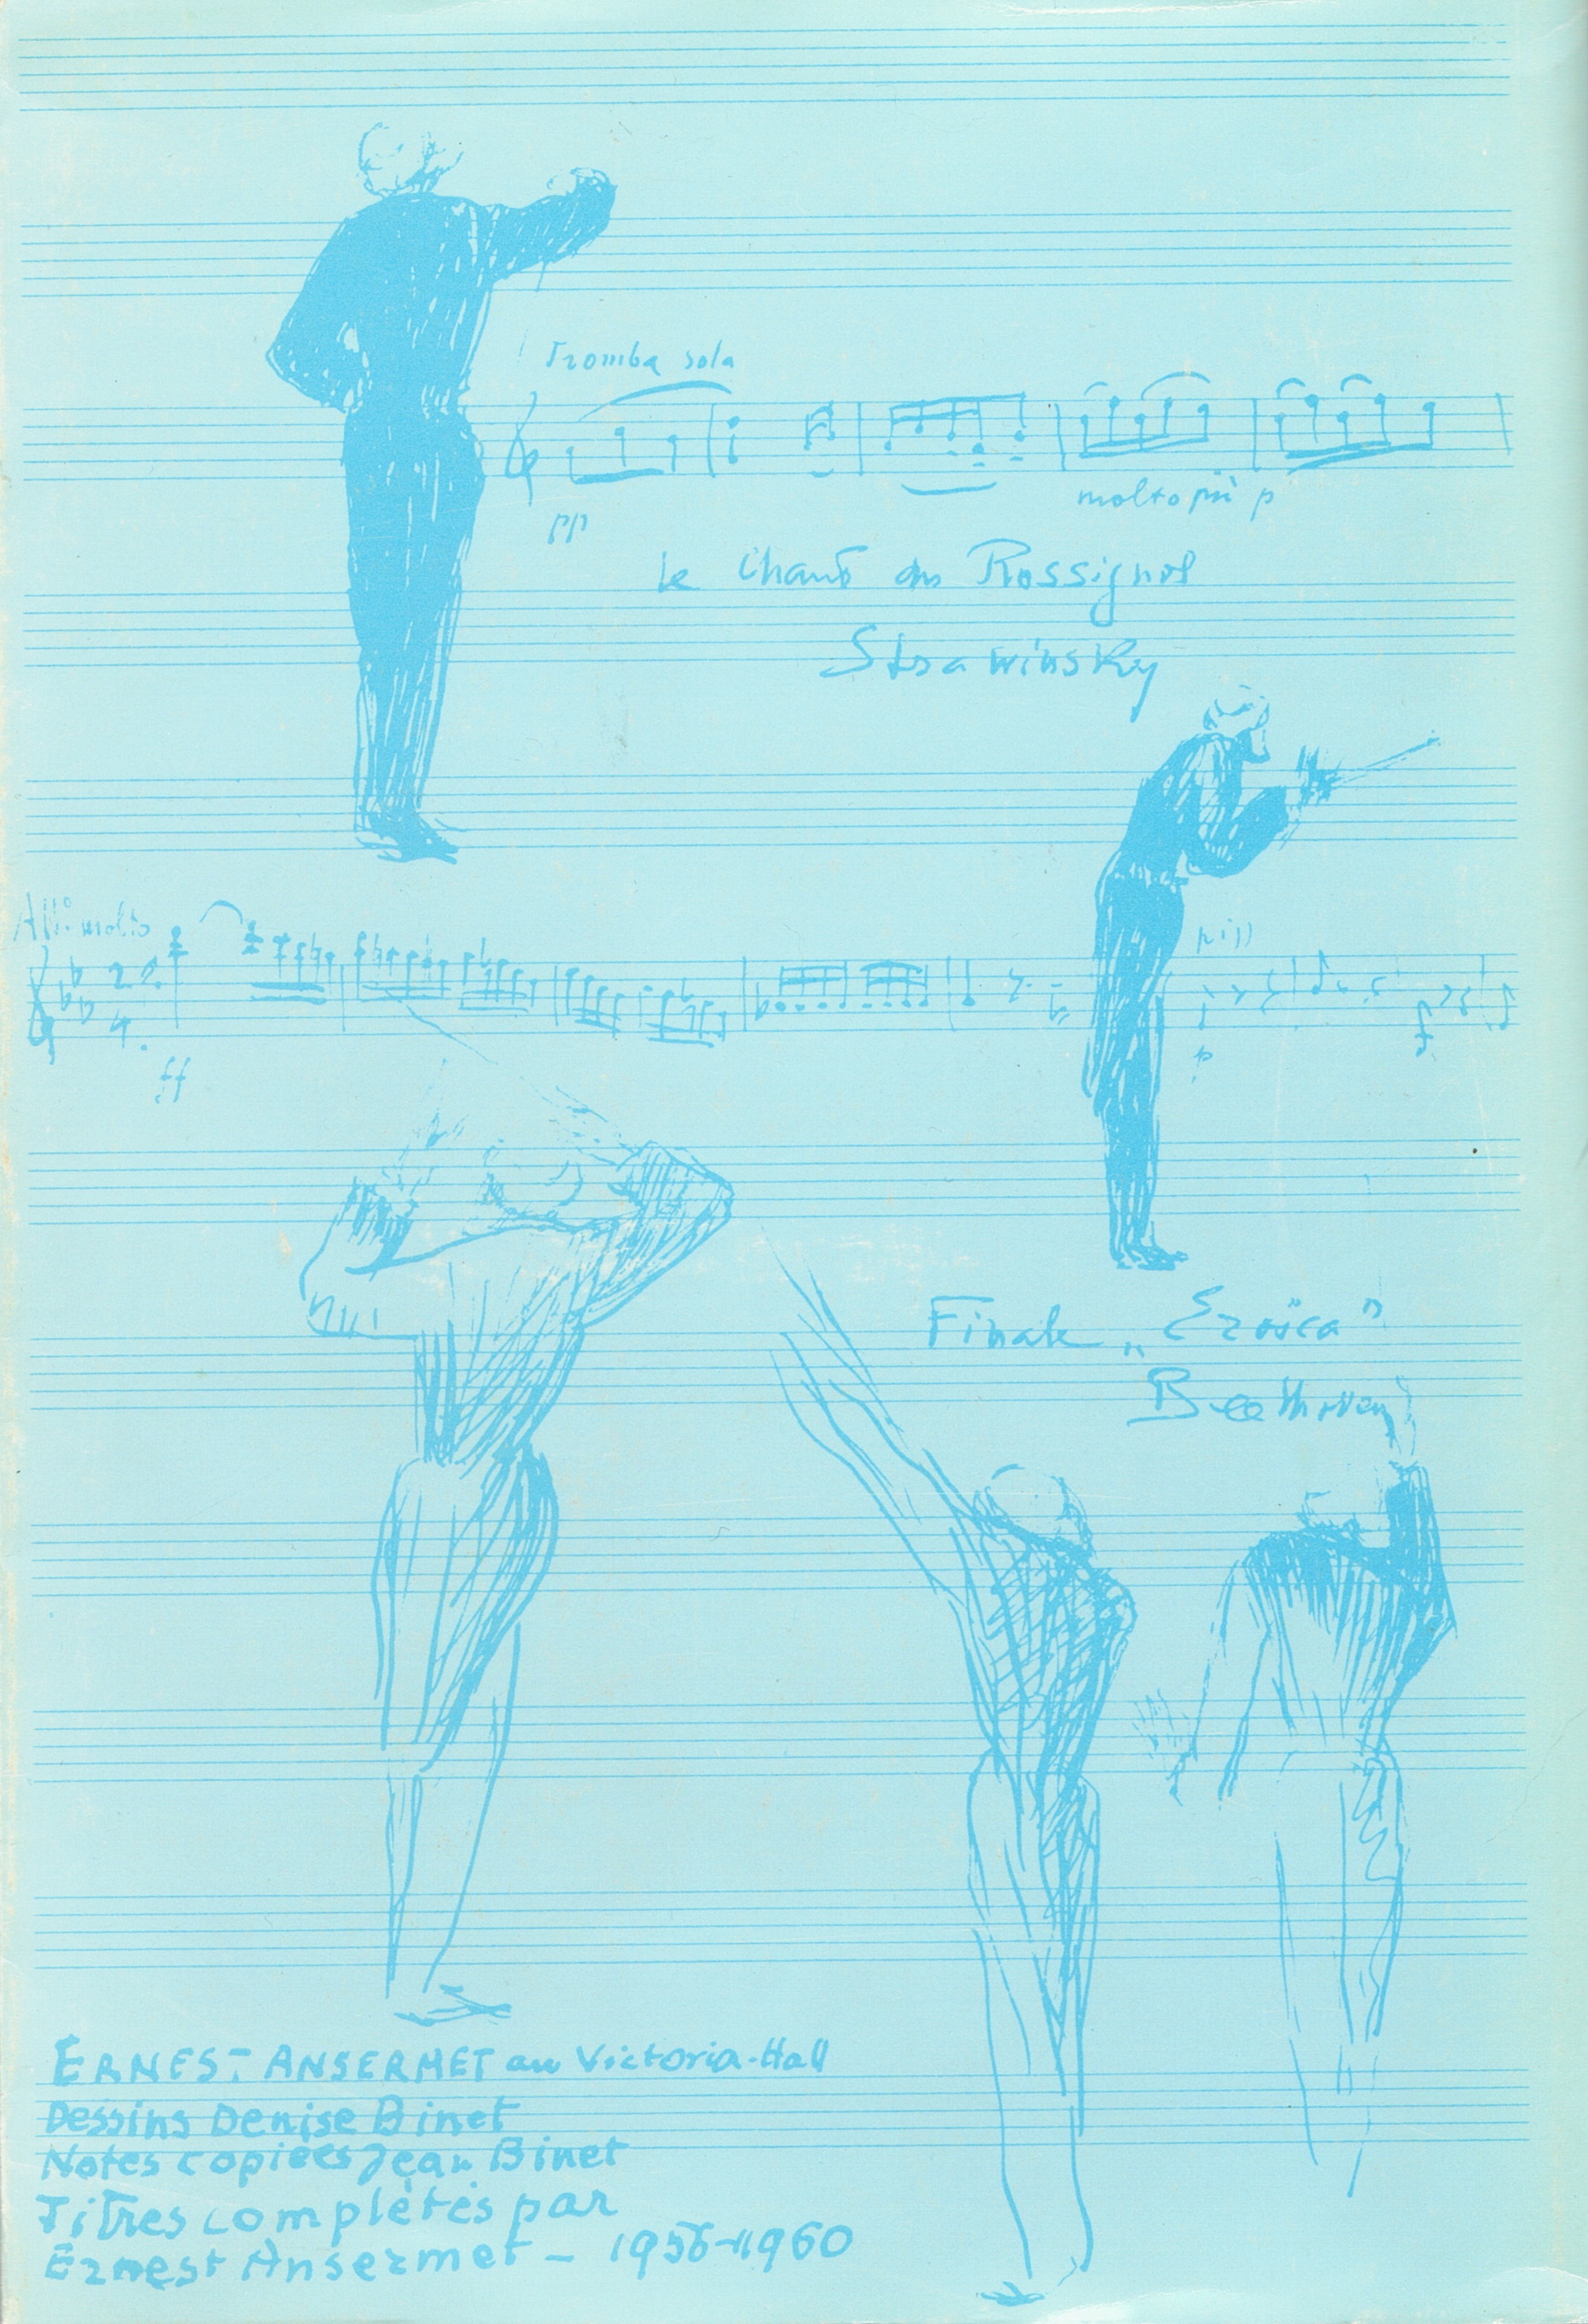 Tromba sola
pp
molto più p
Le Chant du Rossignol
Strawinsky
All: molto
pizz
ff
p
f
Finale „Eroïca"
Beethoven
ERNEST ANSERMET au Victoria-Hall
Dessins Denise Binet
Notes copiées Jean Binet
Titres complétés par
Ernest Ansermet –